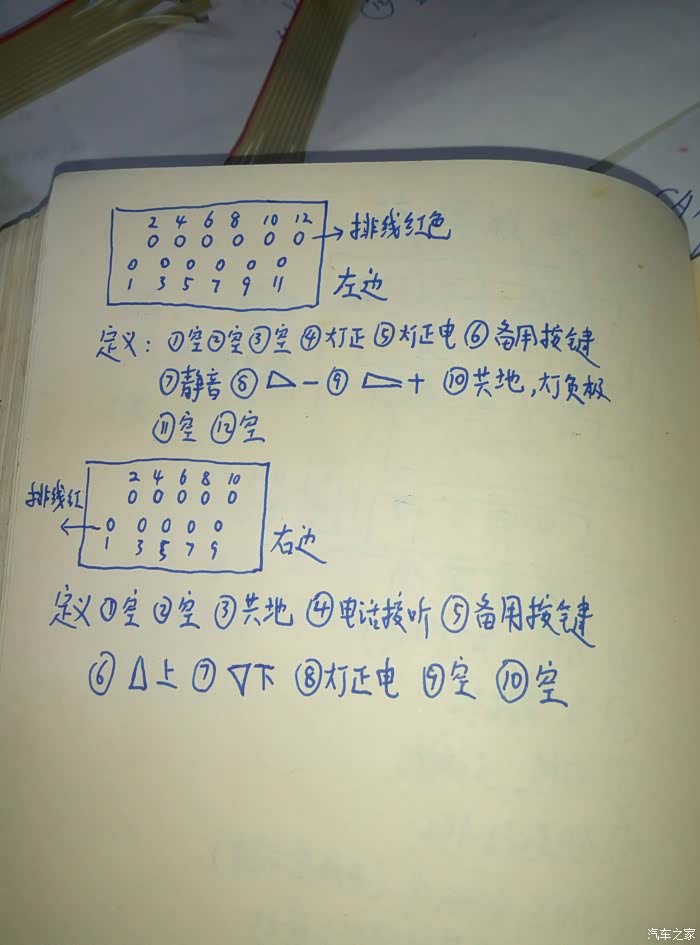 2 4 6 8 10 12
0 0 0 0 0 0 → 排线红色
0 0 0 0 0 0
1 3 5 7 9 11
左边
定义: ①空②空③空 ④灯正 ⑤灯正电 ⑥备用按键
⑦静音 ⑧ - ⑨ + ⑩共地,灯负极
⑪空 ⑫空
2 4 6 8 10
0 0 0 0 0
排线红
← 0 0 0 0 0
1 3 5 7 9
右边
定义 ①空 ②空 ③共地 ④电话接听 ⑤备用按键
⑥ △上 ⑦ ▽下 ⑧灯正电 ⑨空 ⑩空
汽车之家